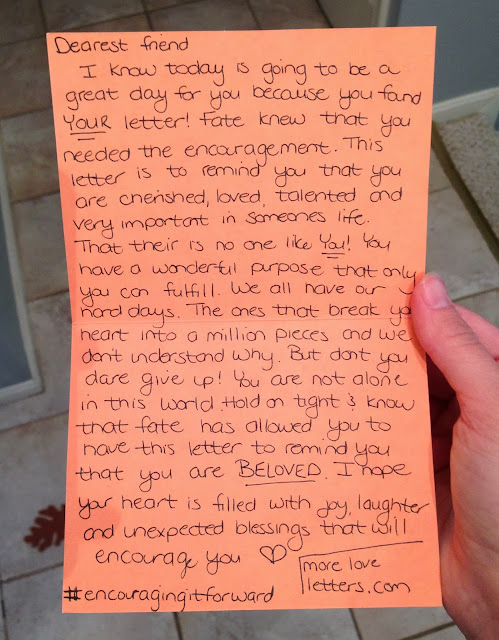 Dearest friend
I know today is going to be a
great day for you because you found
YOUR letter! Fate knew that you
needed the encouragement. This
letter is to remind you that you
are cherished, loved, talented and
very important in someones life.
That their is no one like You! You
have a wonderful purpose that only
you can fulfill. We all have our
hard days. The ones that break yo
heart into a million pieces and we
don't understand why. But dont you
dare give up! You are not alone
in this world. Hold on tight & know
that fate has allowed you to
have this letter to remind you
that you are BELOVED. I hope
your heart is filled with joy, laughter
and unexpected blessings that will
encourage you ♡
more love
letters.com
#encouragingitforward